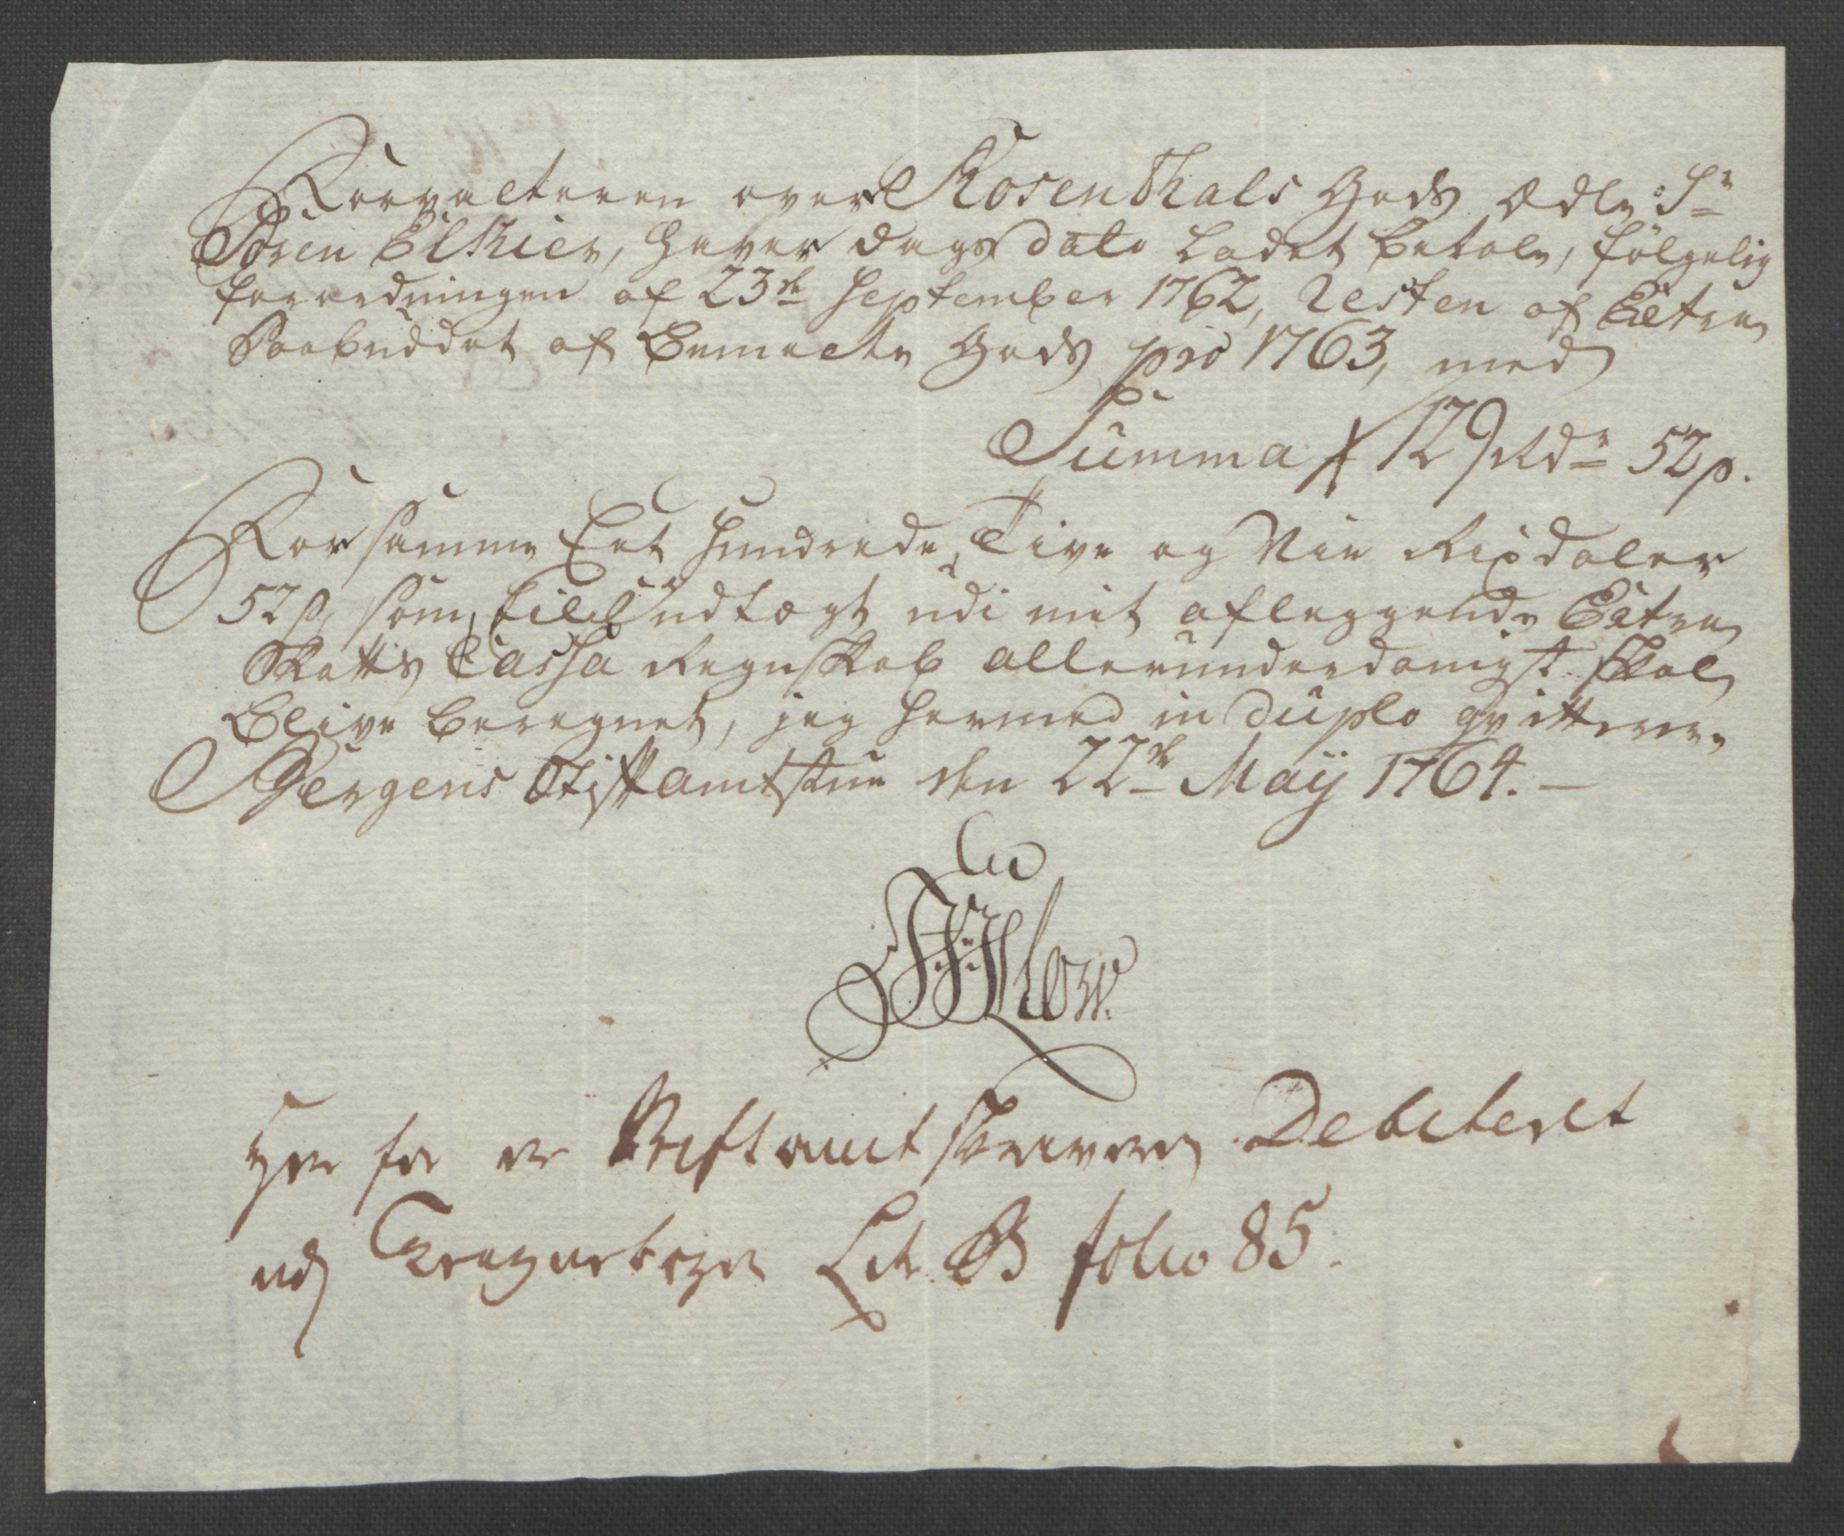 Forvalteren over Rosenthals Gods Ædle Sr
Søren Elkier, haver dags dato ladet betale, følgelig
forordningen af 23de September 1762, Resten af Extra
Paabuddet af bemelte Gods pro 1763, med
Summa 129 Rdr 52 s.
For samme Eet hundrede, Tive og Nie Rixdaler
52 s, som, till Indtægt udi mit aflæggende Extra
Skatts Cassa Regnskab allerunderdanigst skal
blive beregnet, jeg hermed in duplo qvitterer.
Bergens Stiftamtstue den 22de Maÿ 1764. –
Her for er Stiftamtskriveren Debiteret
udj Lit. B folio 85.